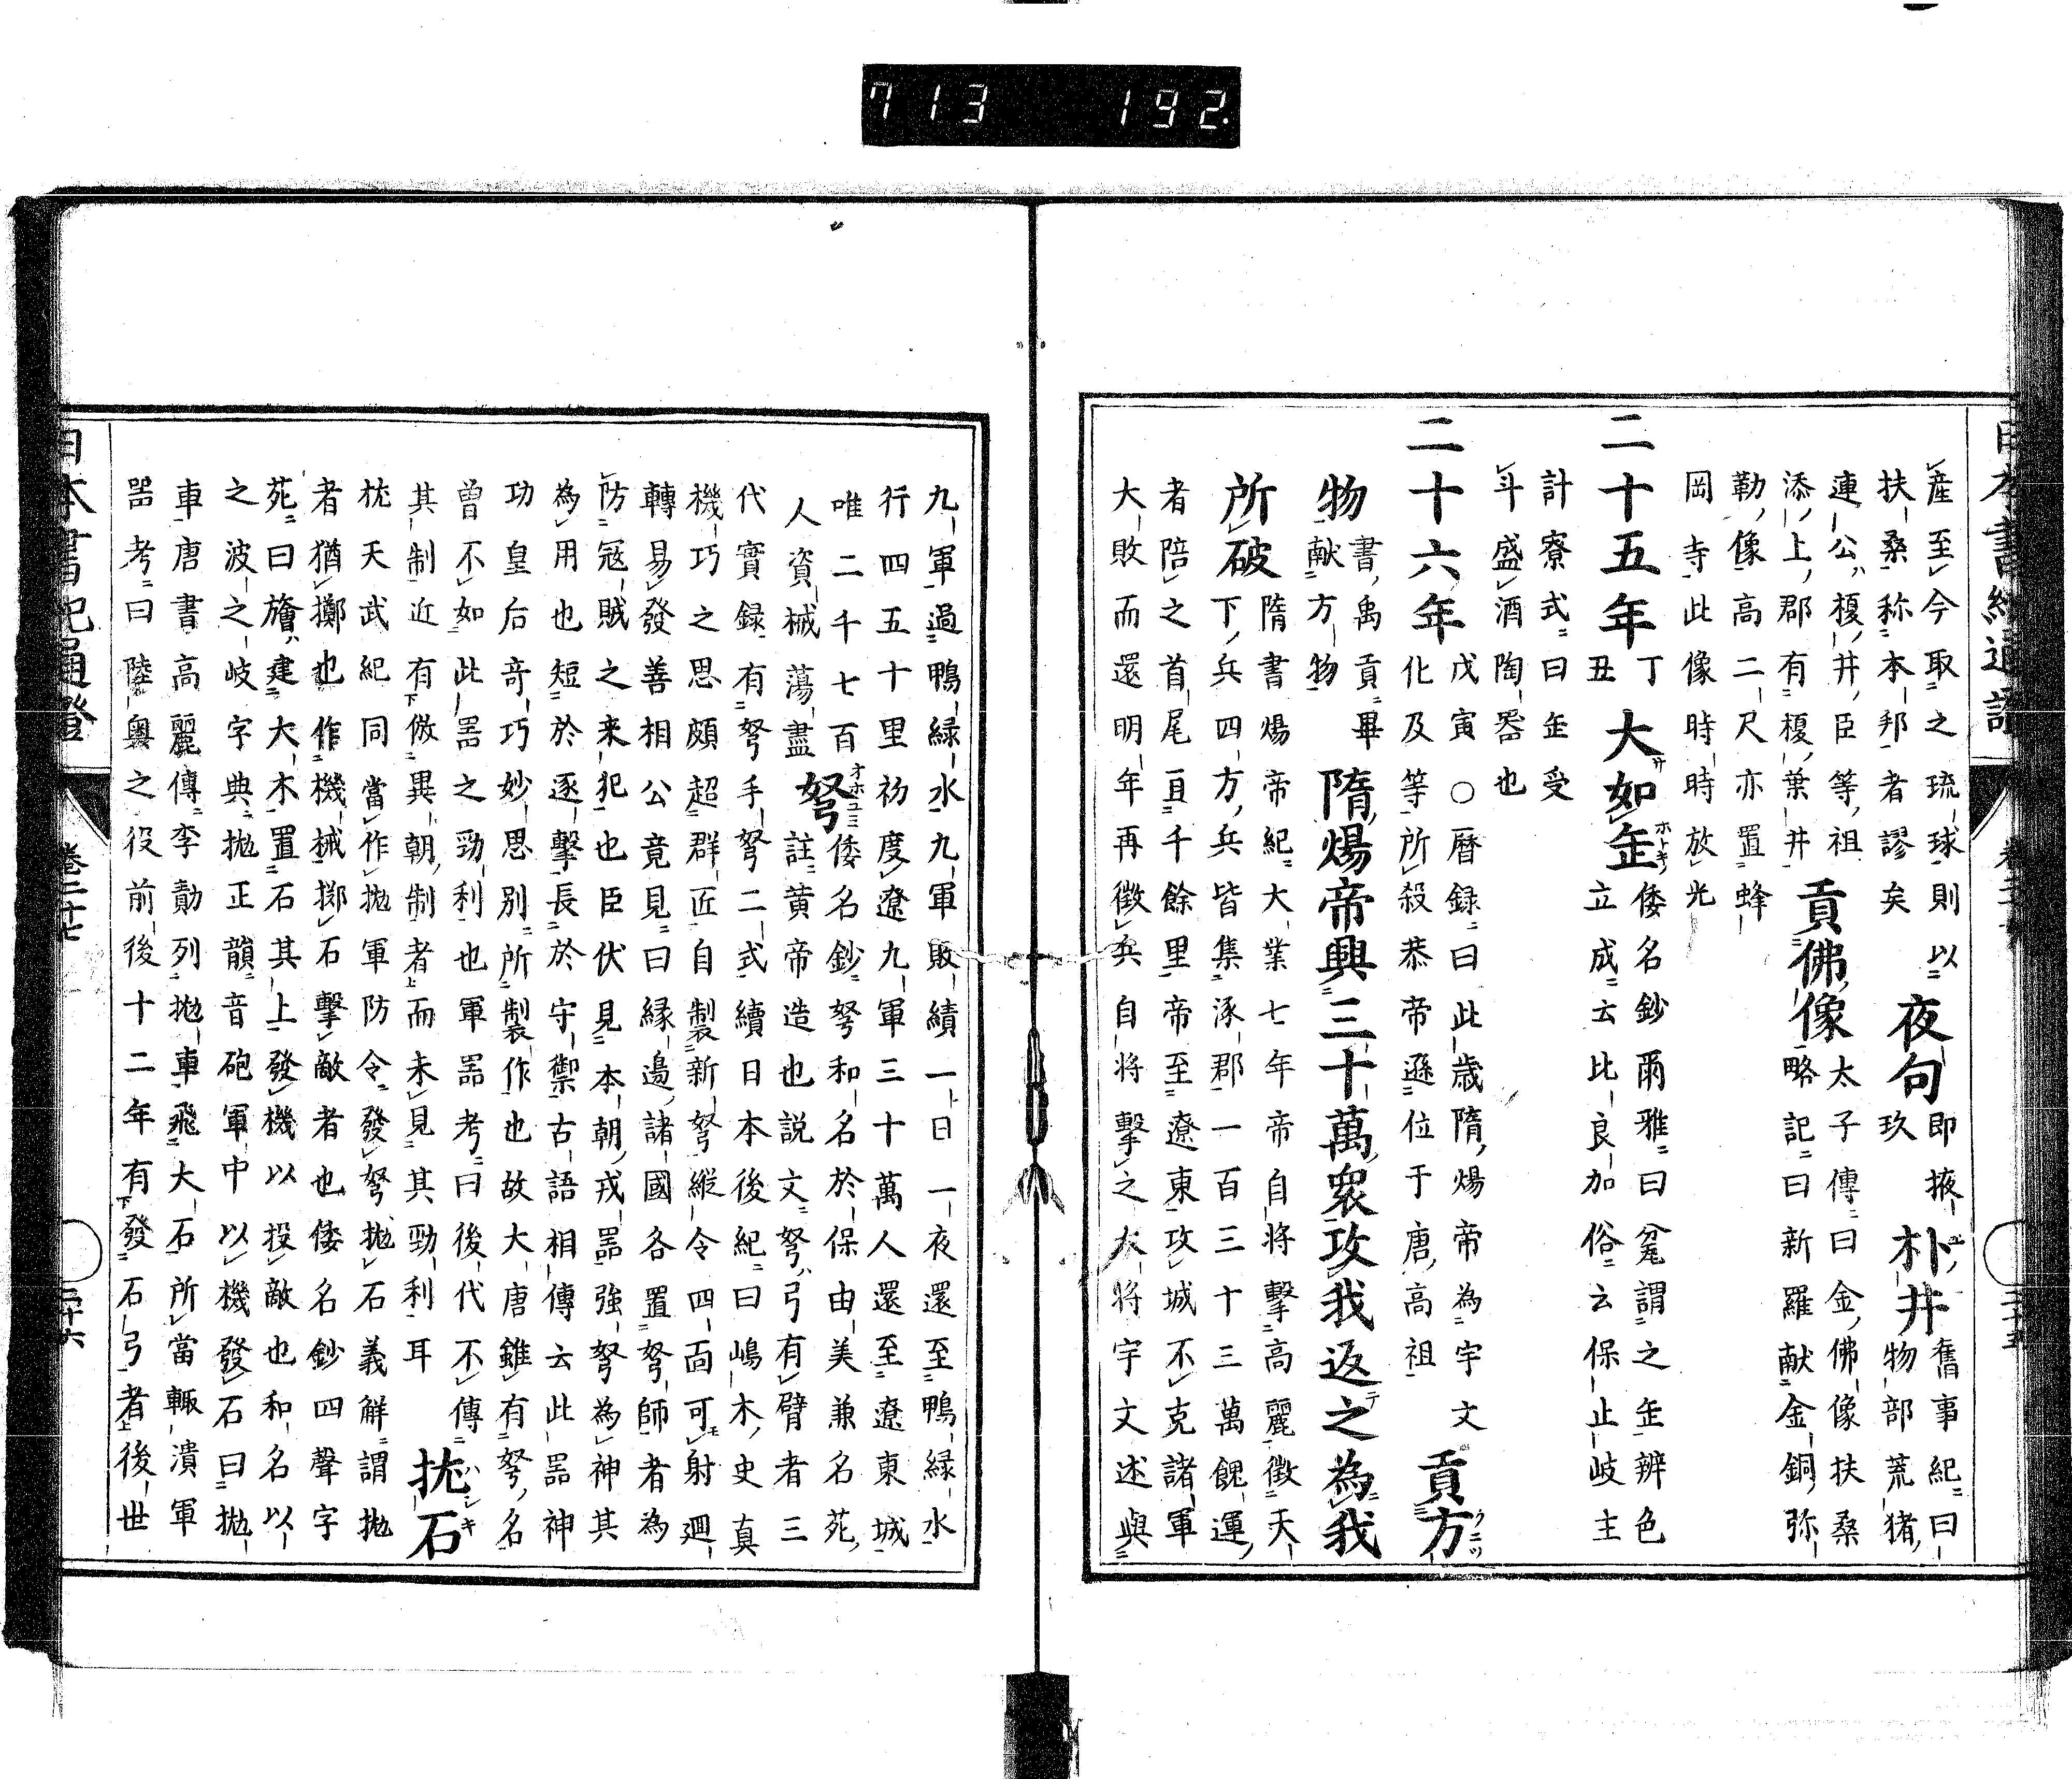 713 192
日本書紀通證 卷二十七 二十五
產至今取之琉球則以夜句即掖玖朴井舊事紀曰物部荒猪
扶桑称本邦者謬矣
連公榎井臣等祖貢佛像太子傳曰金佛像扶桑略記曰新羅献金銅弥
添上郡有榎葉井
勒像高二尺亦置蜂
岡寺此像時時放光
二十五年丁丑大如缶倭名鈔爾雅曰盆謂之缶辨色立成云比良加俗云保止岐主
計寮式曰缶受
斗盛酒陶器也
二十六年戊寅○曆録曰此歳隋煬帝為宇文化及等所殺恭帝遜位于唐高祖貢方
物書禹貢畢献方物隋煬帝興三十萬衆攻我返之為我
所破隋書煬帝紀大業七年帝自将擊高麗徵天
下兵四方兵皆集涿郡一百三十三萬餽運
者陪之首尾亘千餘里帝至遼東攻城不克諸軍
大敗而還明年再徵兵自将擊之大将宇文述與
九軍過鴨緑水九軍敗績一日一夜還至鴨緑水
行四五十里初度遼九軍三十萬人還至遼東城
唯二千七百
人資械蕩盡弩倭名鈔弩和名於保由美兼名苑
註黄帝造也説文弩弓有臂者三
代實録有弩手弩二式續日本後紀曰嶋木史真
機巧之思頗超群匠自製新弩縱令四面可射廻
轉易發善相公竟見曰縁邊諸國各置弩師者為
防冦賊之来犯也臣伏見本朝戎器強弩為神其
為用也短於逐擊長於守禦古語相傳云此器神
功皇后奇巧妙思別所製作也故大唐雖有弩名
曾不如此器之勁利也軍器考曰後代不傳
其制近有倣異朝制者而未見其勁利耳抛石
抛天武紀同當作抛軍防令發弩抛石義解謂抛
者猶擲也作機械擲石擊敵者也倭名鈔四聲字
苑曰旝建大木置石其上發機以投敵也和名以
之波之岐字典抛正韻音砲軍中以機發石曰抛
車唐書高麗傳李勣列抛車飛大石所當輙潰軍
器考曰陸奥之役前後十二年有發石弓者後世
日本書紀通證 卷二十七 二十六